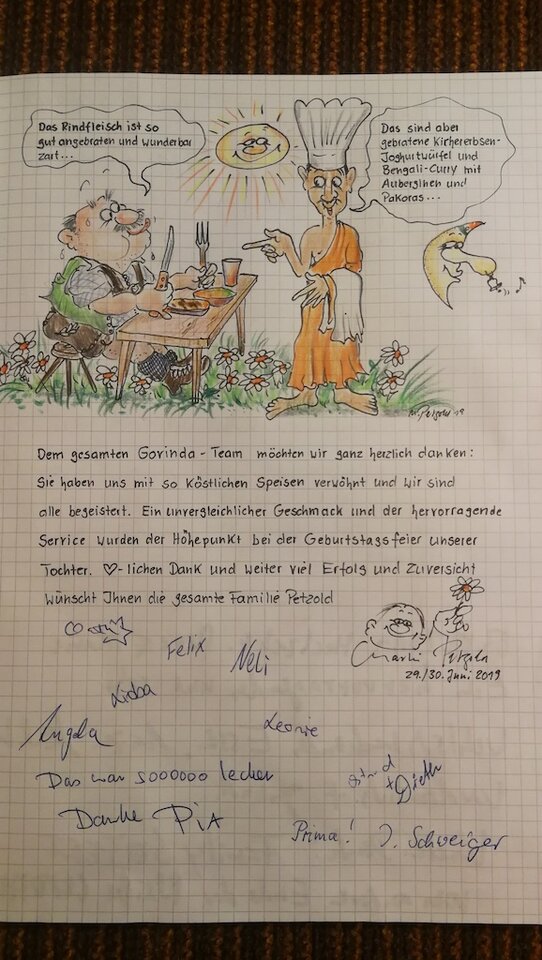 Das Rindfleisch ist so
gut angebraten und wunderbar
zart...
Das sind aber
gebratene Kichererbsen-
Joghurtwürfel und
Bengali-Curry mit
Auberginen und
Pakoras...
Dem gesamten Govinda-Team möchten wir ganz herzlich danken:
Sie haben uns mit so köstlichen Speisen verwöhnt und wir sind
alle begeistert. Ein unvergleichlicher Geschmack und der hervorragende
Service wurden der Höhepunkt bei der Geburtstagsfeier unserer
Tochter. ♡-lichen Dank und weiter viel Erfolg und Zuversicht
wünscht Ihnen die gesamte Familie Petzold
Felix
Neli
29./30. Juni 2019
Angela
Leonie
Das war soooooo lecker
Danke Pia
Prima! J. Schweiger